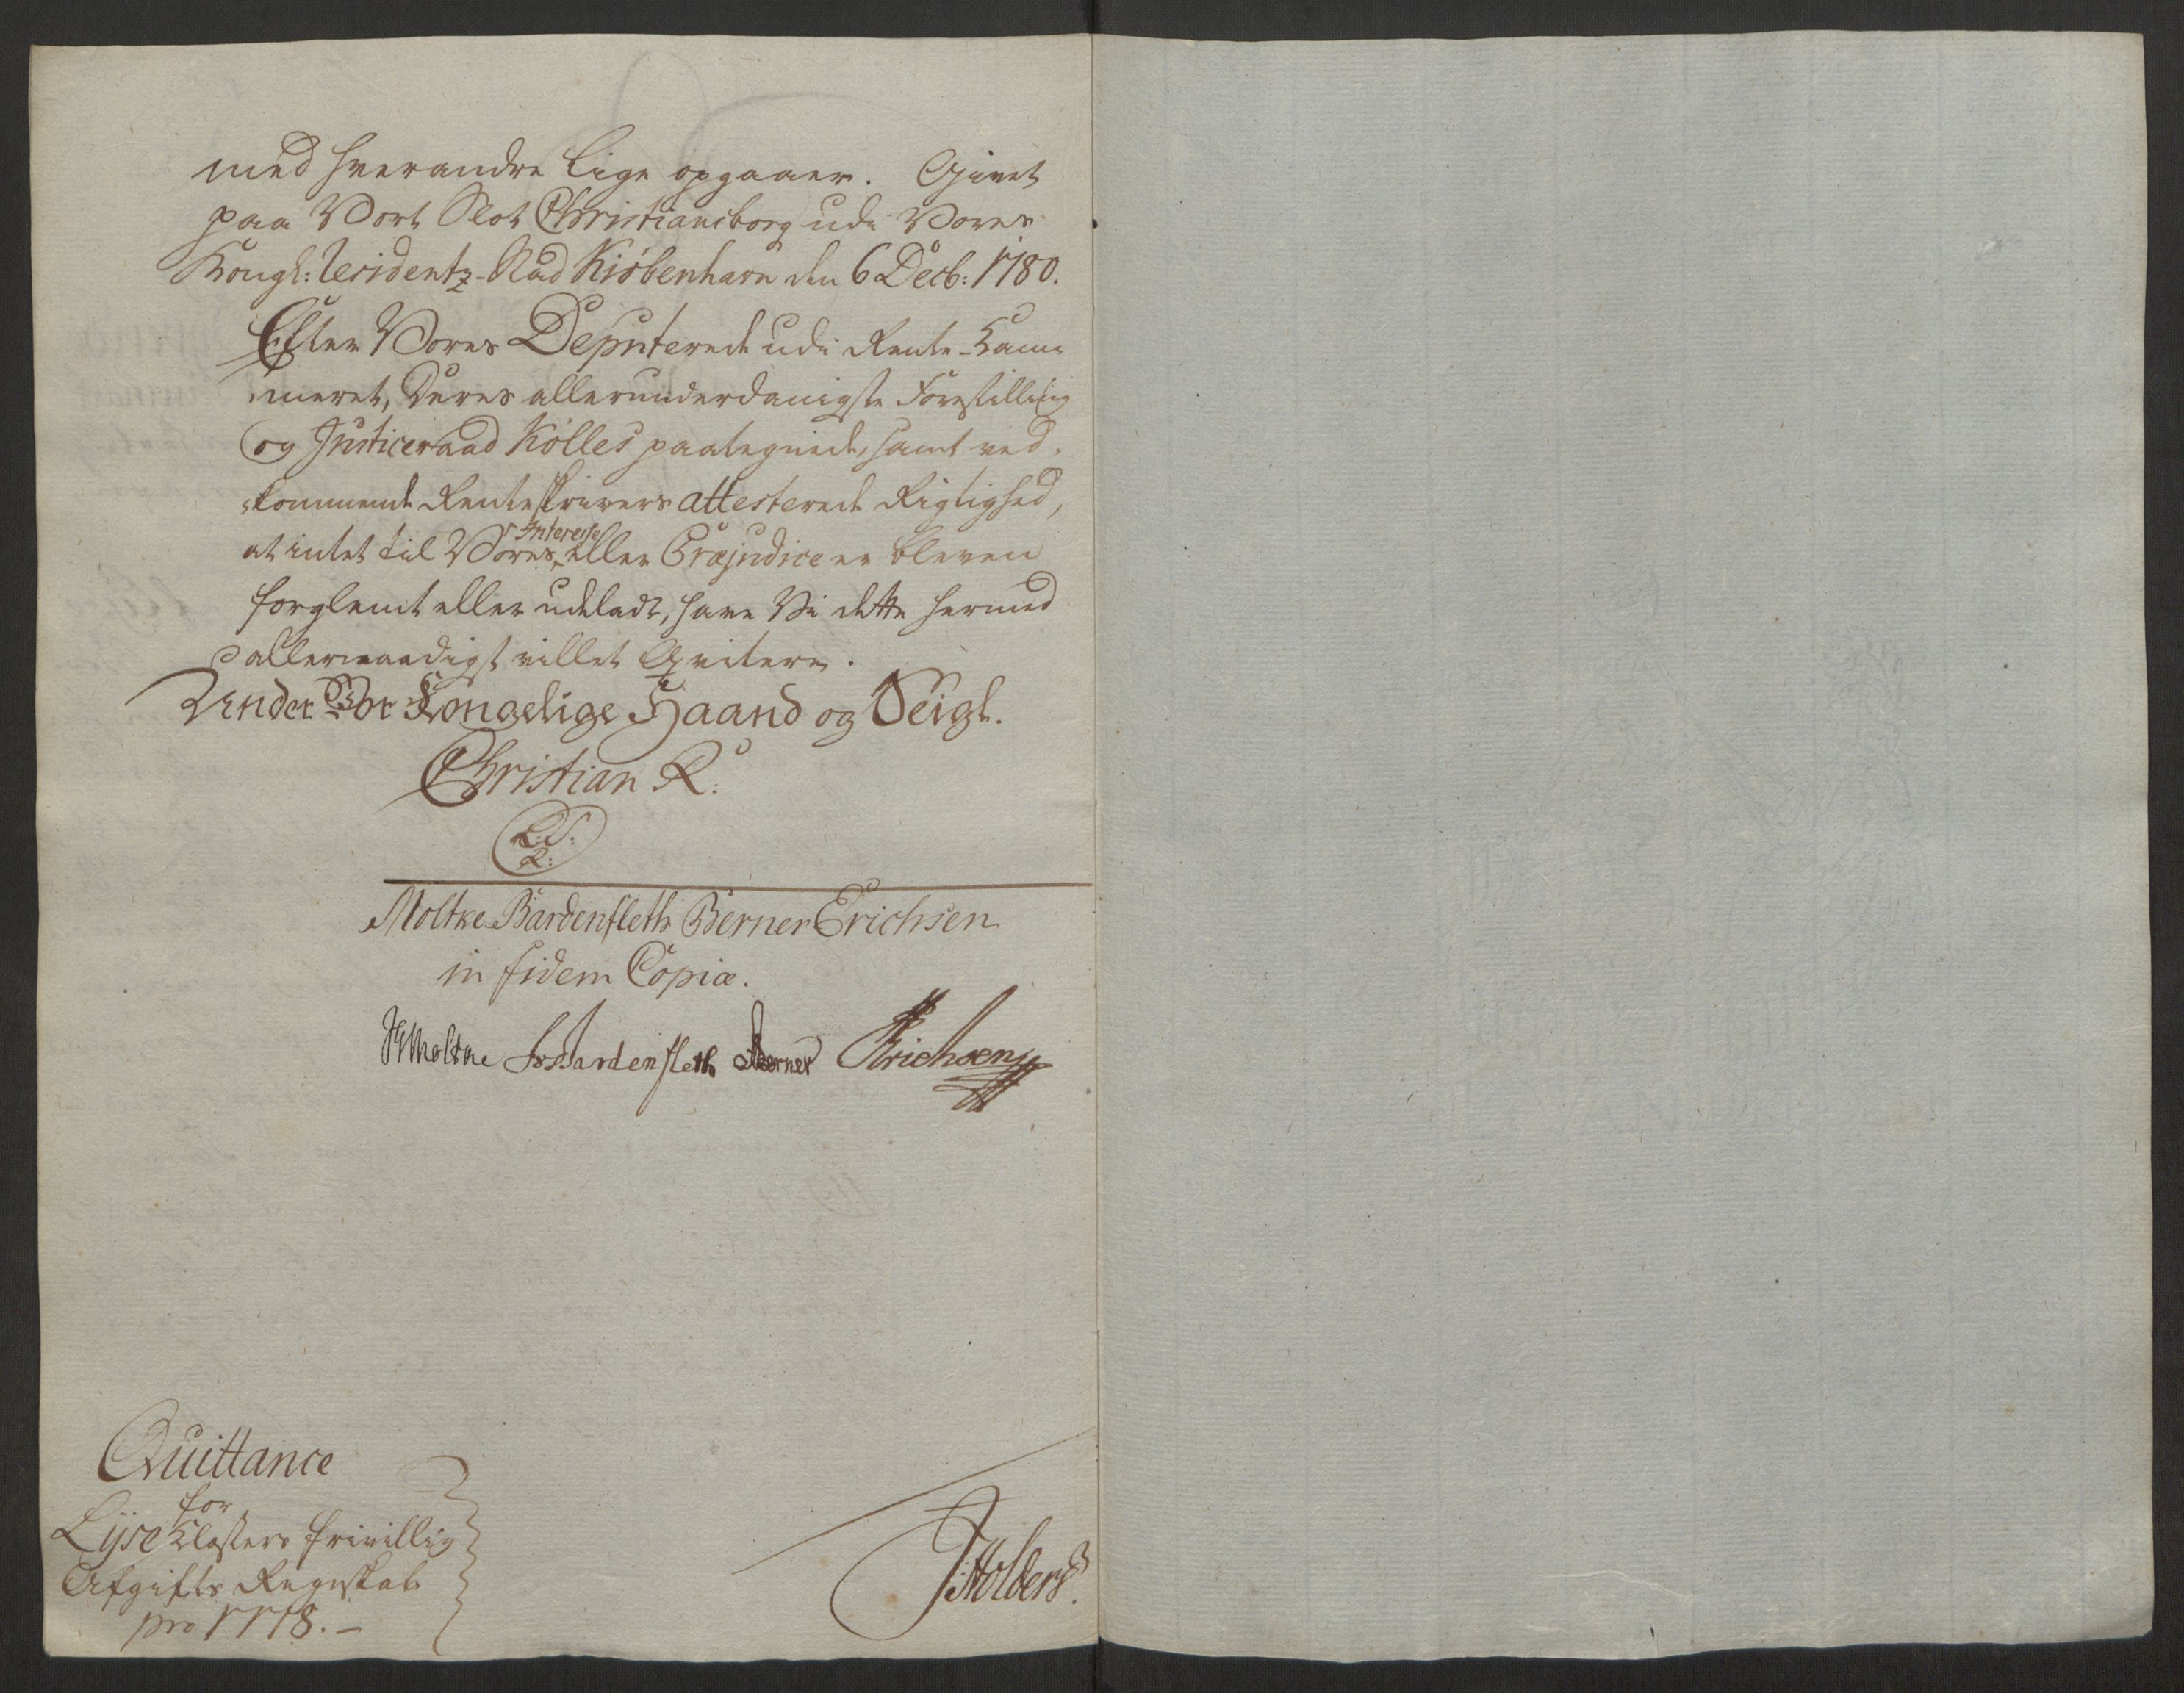 med hverandre lige opgaaer. Givet
paa Vort Slot Christiansborg udi Vores
Kongl: Residentz-Stad Kiöbenhavn den 6 Decb: 1780.
Efter Vores Deputerede udi Rente-Kam-
meret, Deres allerunderdanigste Forestilling
og Justiceraad Kölles paategnede, samt ved-
kommende Renteskrivers attesterede Rigtighed,
at intet til Vores Interesse eller Præjudice er bleven
forglemt eller udeladt, have Vi dette hermed
allernaadigst villet Qvitere.
Under Vor Kongelige Haand og Seigl.
Christian R:
L:S:
R:
Moltke Bardenfleth Berner Erichsen
in fidem Copiæ.
Moltke Bardenfleth Berner Erichsen
Quittance
for
Lyse Klosters frivillig
Afgifts Regnskab
pro 1778.-
J Holbers.